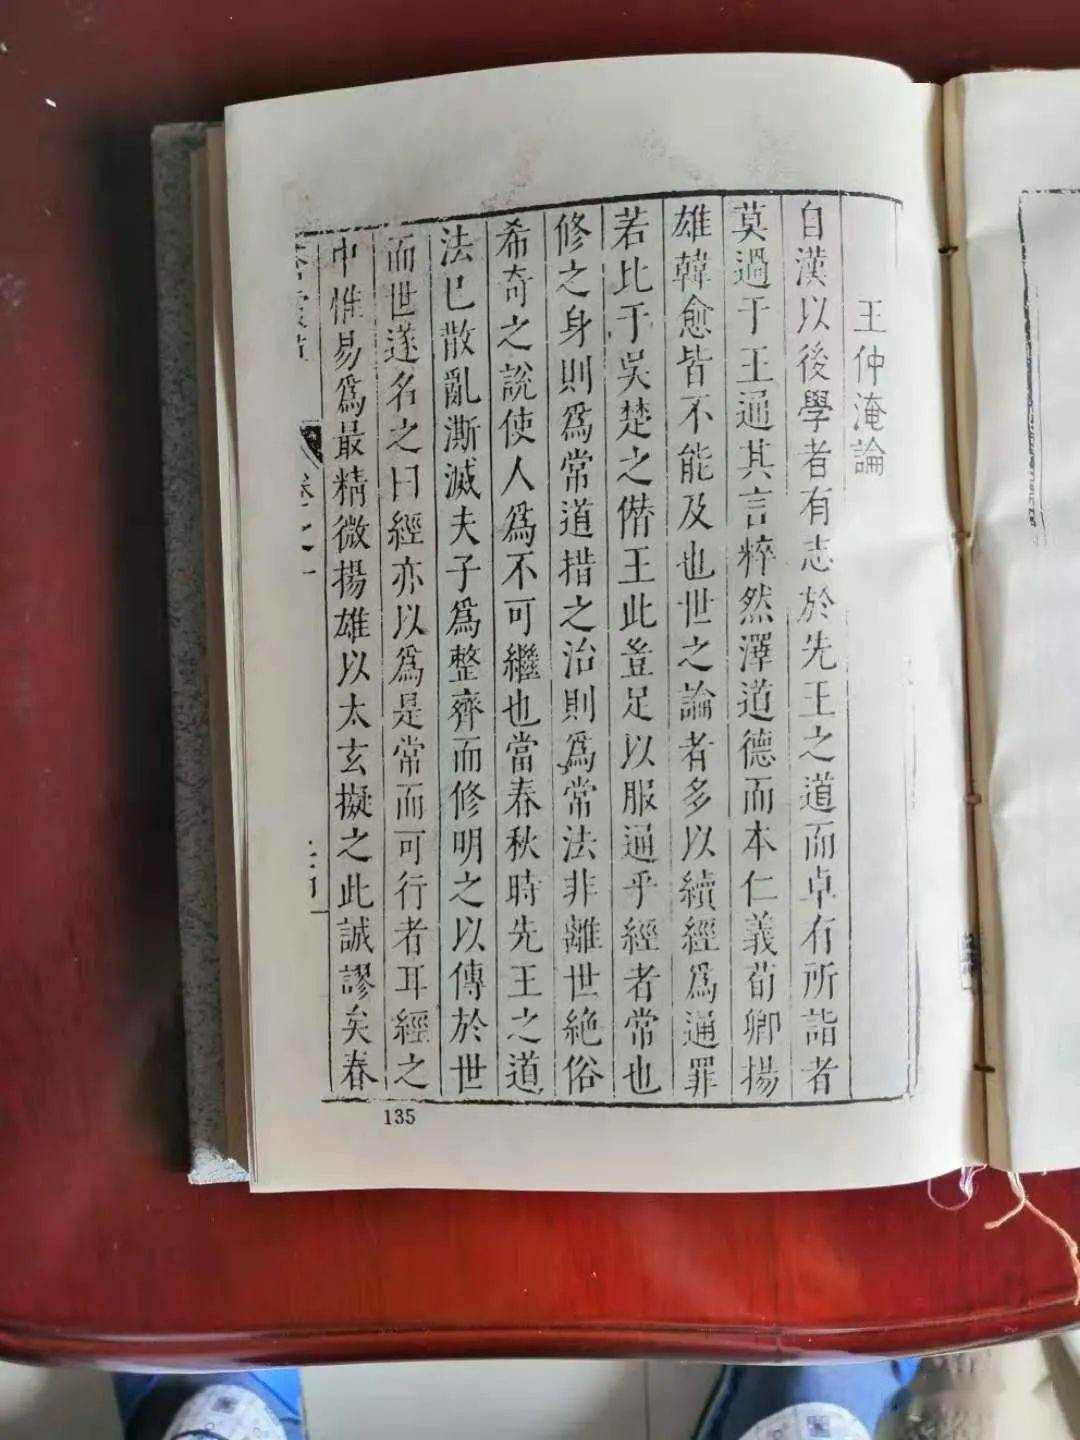 王仲淹論
自漢以後學者有志於先王之道而卓有所詣者
莫過于王通其言粹然澤道德而本仁義荀卿揚
雄韓愈皆不能及也世之論者多以續經爲通罪
若比于吳楚之僭王此豈足以服通乎經者常也
修之身則爲常道措之治則爲常法非離世絶俗
希奇之說使人爲不可繼也當春秋時先王之道
法已散亂澌滅夫子爲整齊而修明之以傳於世
而世遂名之曰經亦以爲是常而可行者耳經之
中惟易爲最精微揚雄以太玄擬之此誠謬矣春
卷之一
135